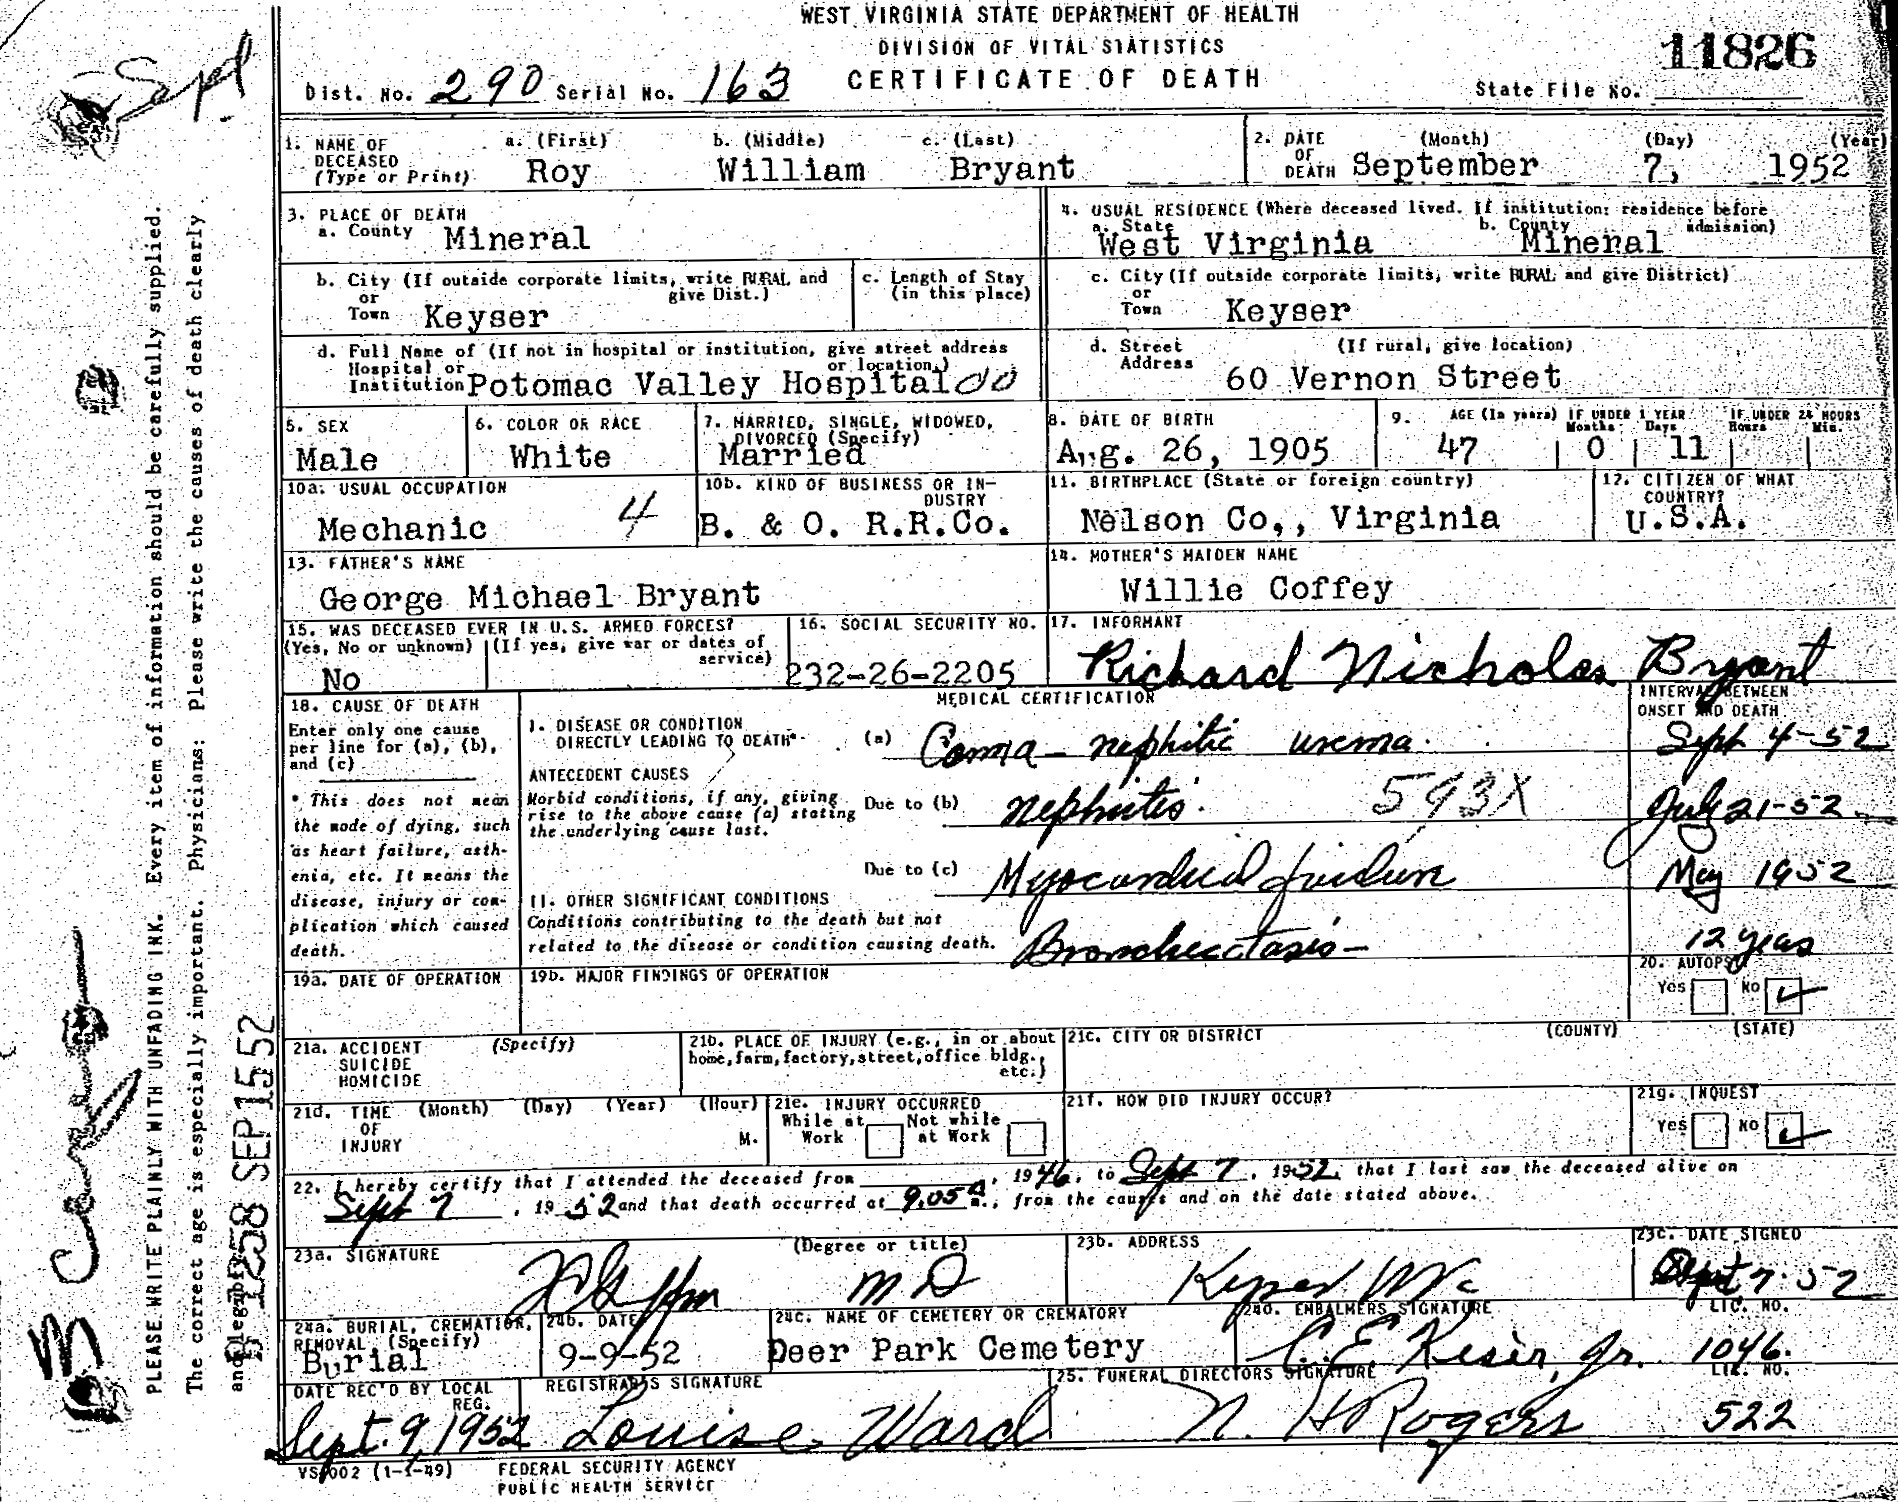 WEST VIRGINIA STATE DEPARTMENT OF HEALTH
DIVISION OF VITAL STATISTICS
11826
Dist. No. 290 Serial No. 163 CERTIFICATE OF DEATH State File No.
1. NAME OF DECEASED (Type or Print) a. (First) b. (Middle) c. (Last)
Roy William Bryant
2. DATE OF DEATH (Month) (Day) (Year)
September 7, 1952
3. PLACE OF DEATH
a. County Mineral
4. USUAL RESIDENCE (Where deceased lived. If institution: residence before admission)
a. State b. County
West Virginia Mineral
b. City (If outside corporate limits, write RURAL and give Dist.)
or Town Keyser
c. Length of Stay (in this place)
c. City (If outside corporate limits, write RURAL and give District)
or Town Keyser
d. Full Name of (If not in hospital or institution, give street address or location.)
Hospital or Institution Potomac Valley Hospital 00
d. Street Address (If rural, give location)
60 Vernon Street
5. SEX
Male
6. COLOR OR RACE
White
7. MARRIED, SINGLE, WIDOWED, DIVORCED (Specify)
Married
8. DATE OF BIRTH
Aug. 26, 1905
9. AGE (In years) IF UNDER 1 YEAR IF UNDER 24 HOURS
Months Days Hours Min.
47 0 11
10a. USUAL OCCUPATION
Mechanic 4
10b. KIND OF BUSINESS OR INDUSTRY
B. & O. R.R.Co.
11. BIRTHPLACE (State or foreign country)
Nelson Co,, Virginia
12. CITIZEN OF WHAT COUNTRY?
U.S.A.
13. FATHER'S NAME
George Michael Bryant
14. MOTHER'S MAIDEN NAME
Willie Coffey
15. WAS DECEASED EVER IN U.S. ARMED FORCES?
(Yes, No or unknown) (If yes, give war or dates of service)
No
16. SOCIAL SECURITY NO.
232-26-2205
17. INFORMANT
Richard Nicholas Bryant
18. CAUSE OF DEATH
Enter only one cause per line for (a), (b), and (c)
* This does not mean the mode of dying, such as heart failure, asthenia, etc. It means the disease, injury or complication which caused death.
MEDICAL CERTIFICATION
INTERVAL BETWEEN ONSET AND DEATH
I. DISEASE OR CONDITION DIRECTLY LEADING TO DEATH*
(a) Coma - nephitic urema. Sept 4-52
ANTECEDENT CAUSES
Morbid conditions, if any, giving rise to the above cause (a) stating the underlying cause last.
Due to (b) nephritis. 593X July 21-52
Due to (c) Myocardial failure May 1952
II. OTHER SIGNIFICANT CONDITIONS
Conditions contributing to the death but not related to the disease or condition causing death.
Bronchiectasis - 12 years
19a. DATE OF OPERATION
19b. MAJOR FINDINGS OF OPERATION
20. AUTOPSY
Yes No ✓
21a. ACCIDENT SUICIDE HOMICIDE (Specify)
21b. PLACE OF INJURY (e.g., in or about home, farm, factory, street, office bldg., etc.)
21c. CITY OR DISTRICT (COUNTY) (STATE)
21d. TIME OF INJURY (Month) (Day) (Year) (Hour) M.
21e. INJURY OCCURRED
While at Work Not while at Work
21f. HOW DID INJURY OCCUR?
21g. INQUEST
Yes No ✓
22. I hereby certify that I attended the deceased from , 1946, to Sept 7, 1952, that I last saw the deceased alive on
Sept 7, 1952 and that death occurred at 9.05 a m., from the causes and on the date stated above.
23a. SIGNATURE (Degree or title)
M D
23b. ADDRESS
Keyser W Va
23c. DATE SIGNED
Sept 7-52
24a. BURIAL, CREMATION, REMOVAL, (Specify)
Burial
24b. DATE
9-9-52
24c. NAME OF CEMETERY OR CREMATORY
Deer Park Cemetery
24d. EMBALMERS SIGNATURE LIC. NO.
C. E. Keser, Jr. 1046.
DATE REC'D BY LOCAL REG.
Sept. 9, 1952
REGISTRAR'S SIGNATURE
Louise Ward
25. FUNERAL DIRECTORS SIGNATURE LIC. NO.
N. H Rogers 522
VS 002 (1-1-49) FEDERAL SECURITY AGENCY
PUBLIC HEALTH SERVICE
PLEASE WRITE PLAINLY WITH UNFADING INK. Every item of information should be carefully supplied.
The correct age is especially important. Physicians: Please write the causes of death clearly
and legibly.
SEP 15 52